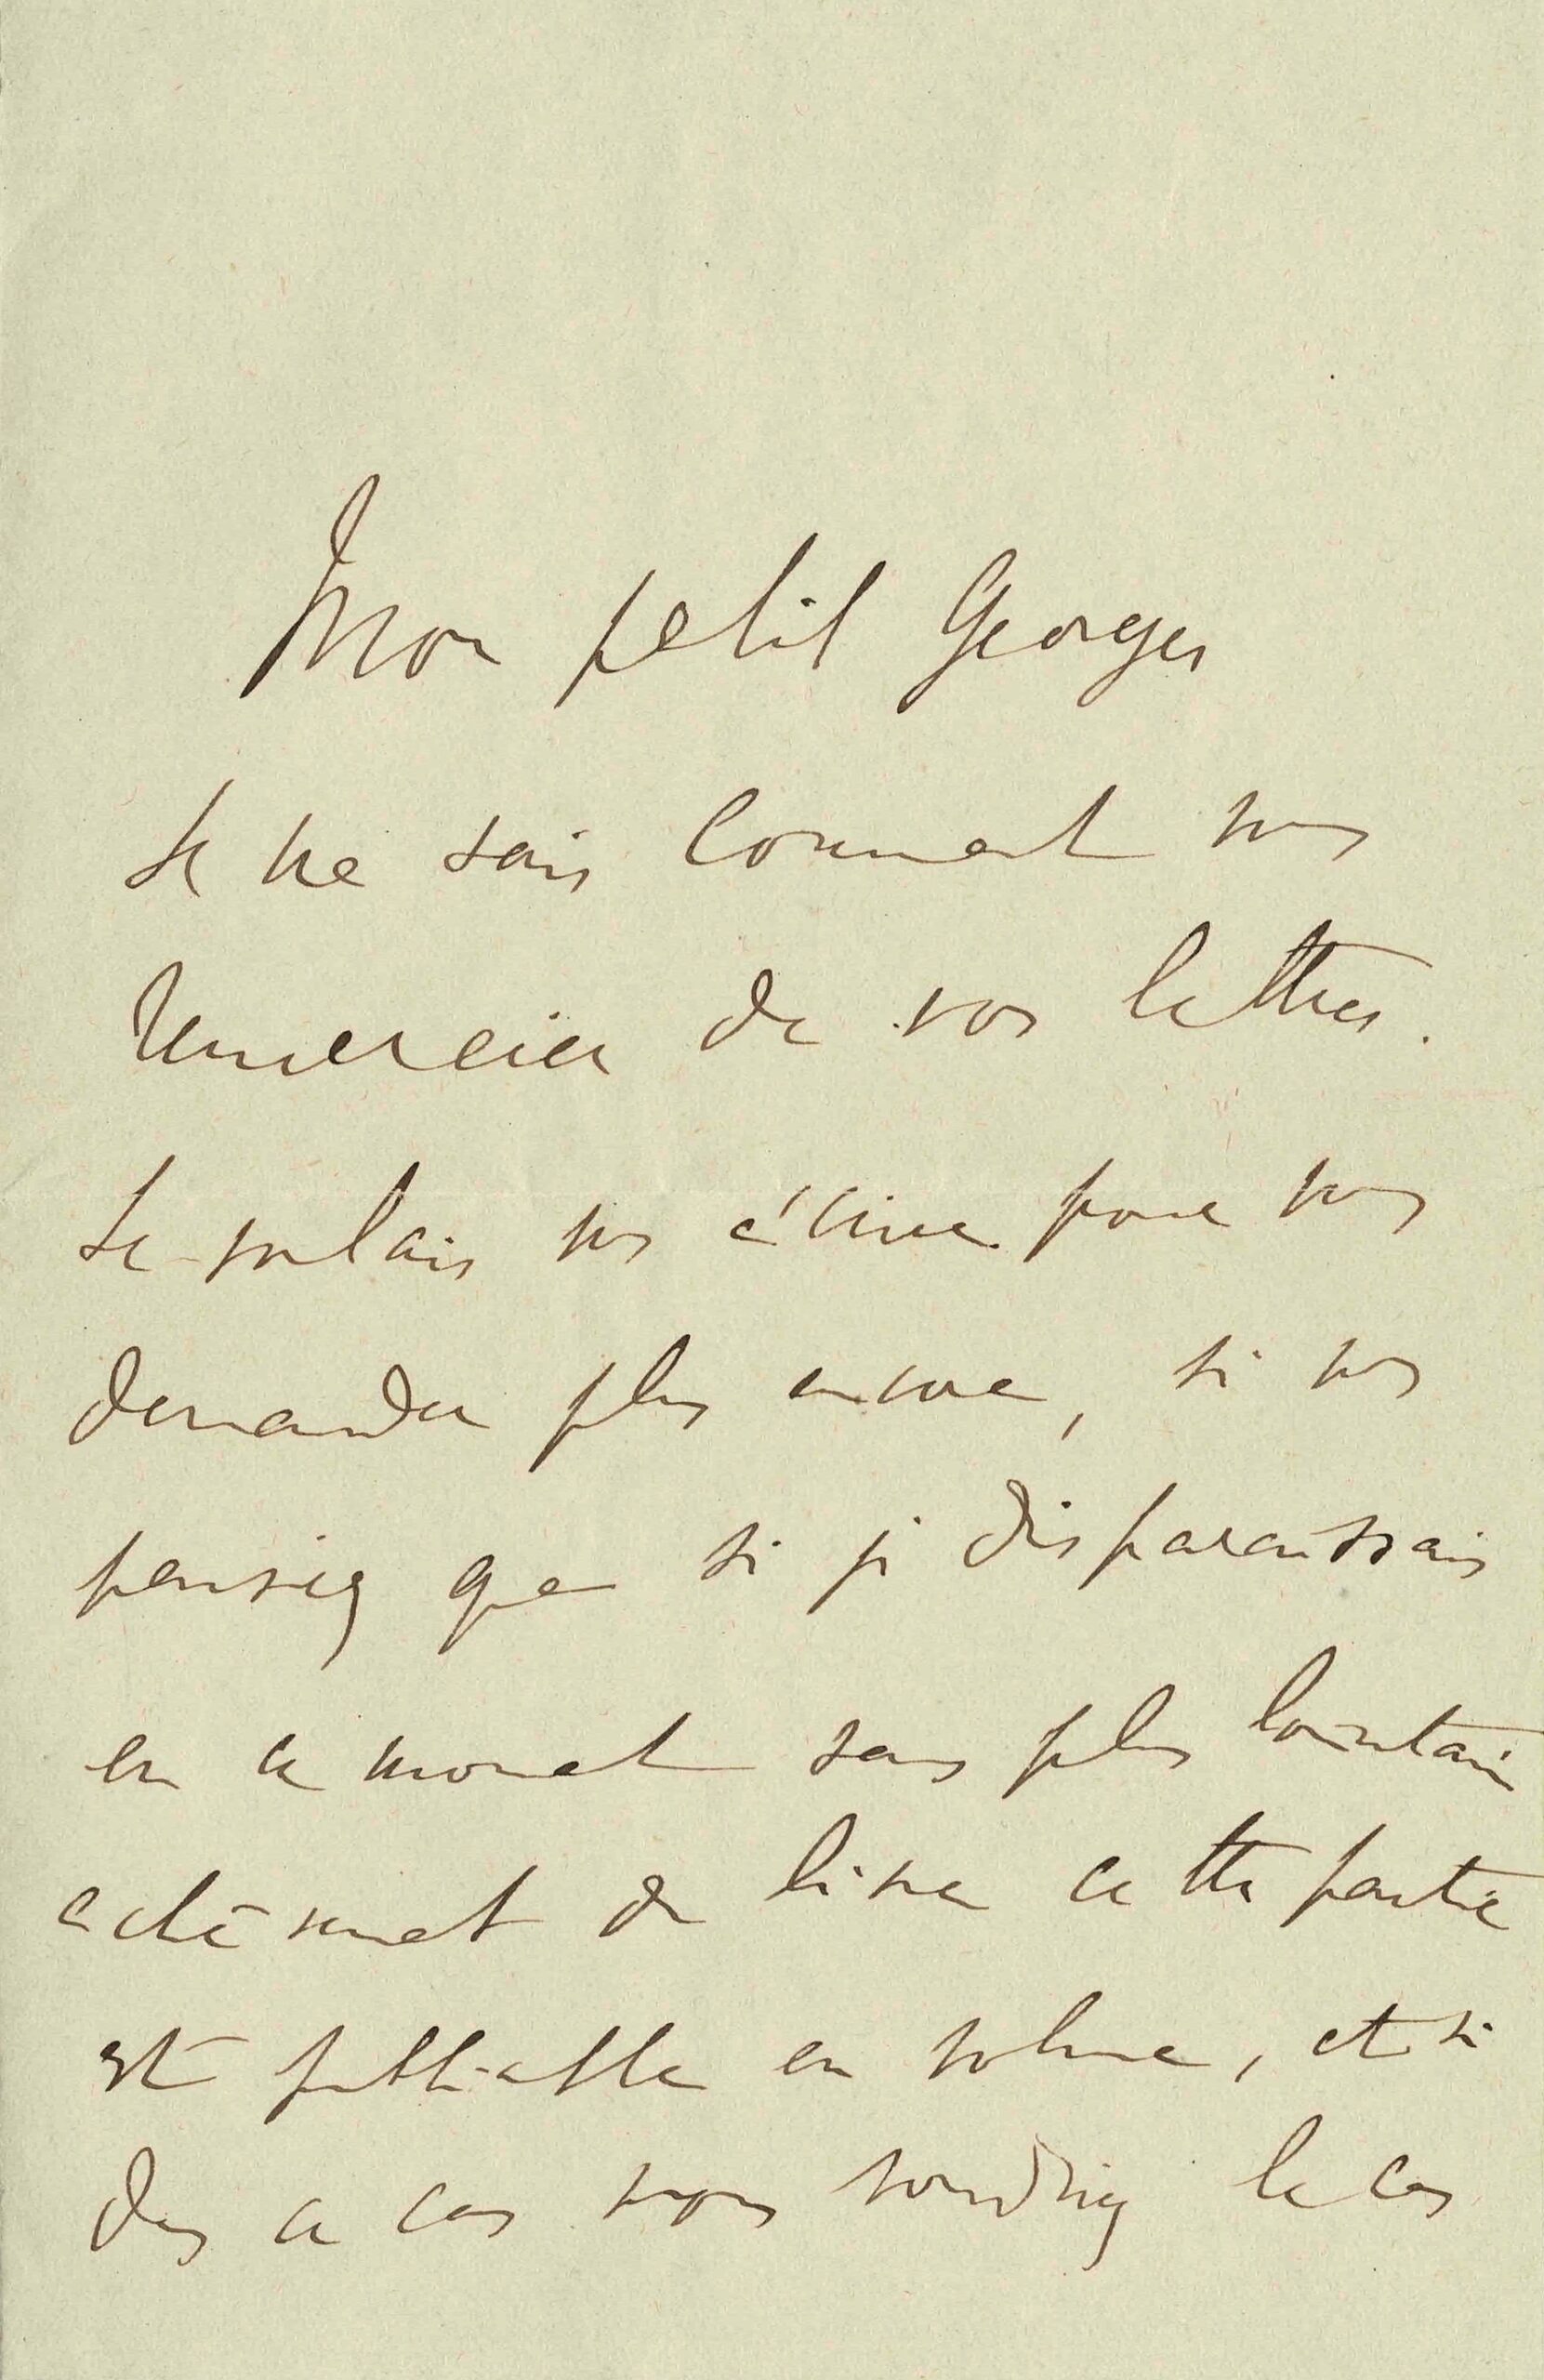 Mon petit Georges
Je ne sais comment vous
remercier de vos lettres.
Je voulais vs écrire pour vous
demander plus encore, si vs
pensiez que si je disparaissais
en ce moment sans plus lointain
achèvement de livre cette partie
est publiable en volume, et si
dans ce cas vous voudriez le cas